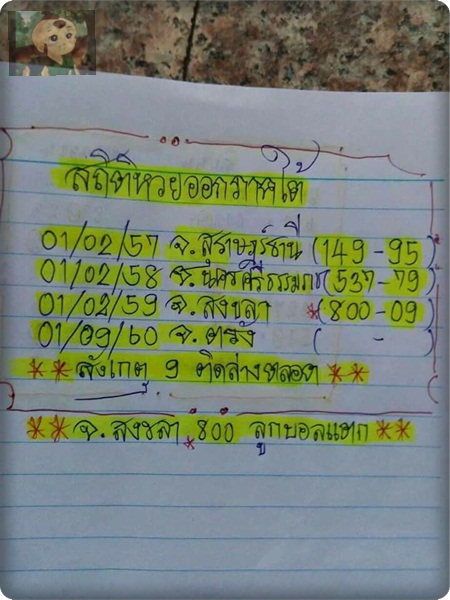 สถิติหวยออกภาคใต้
01/02/57 จ.สุราษฎร์ธานี (149-95)
01/02/58 จ.นครศรีธรรมราช (537-79)
01/02/59 จ.สงขลา *(800-09)
01/09/60 จ.ตรัง ( - )
** สังเกตุ 9 ติดล่างตลอด **
** จ.สงขลา *800 ลูกบอลแตก **